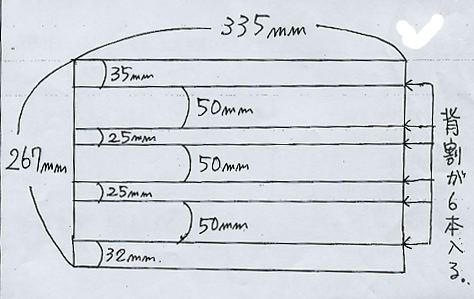 335mm
35mm
50mm
25mm
267mm
50mm
25mm
50mm
32mm.
背割が6本入る。